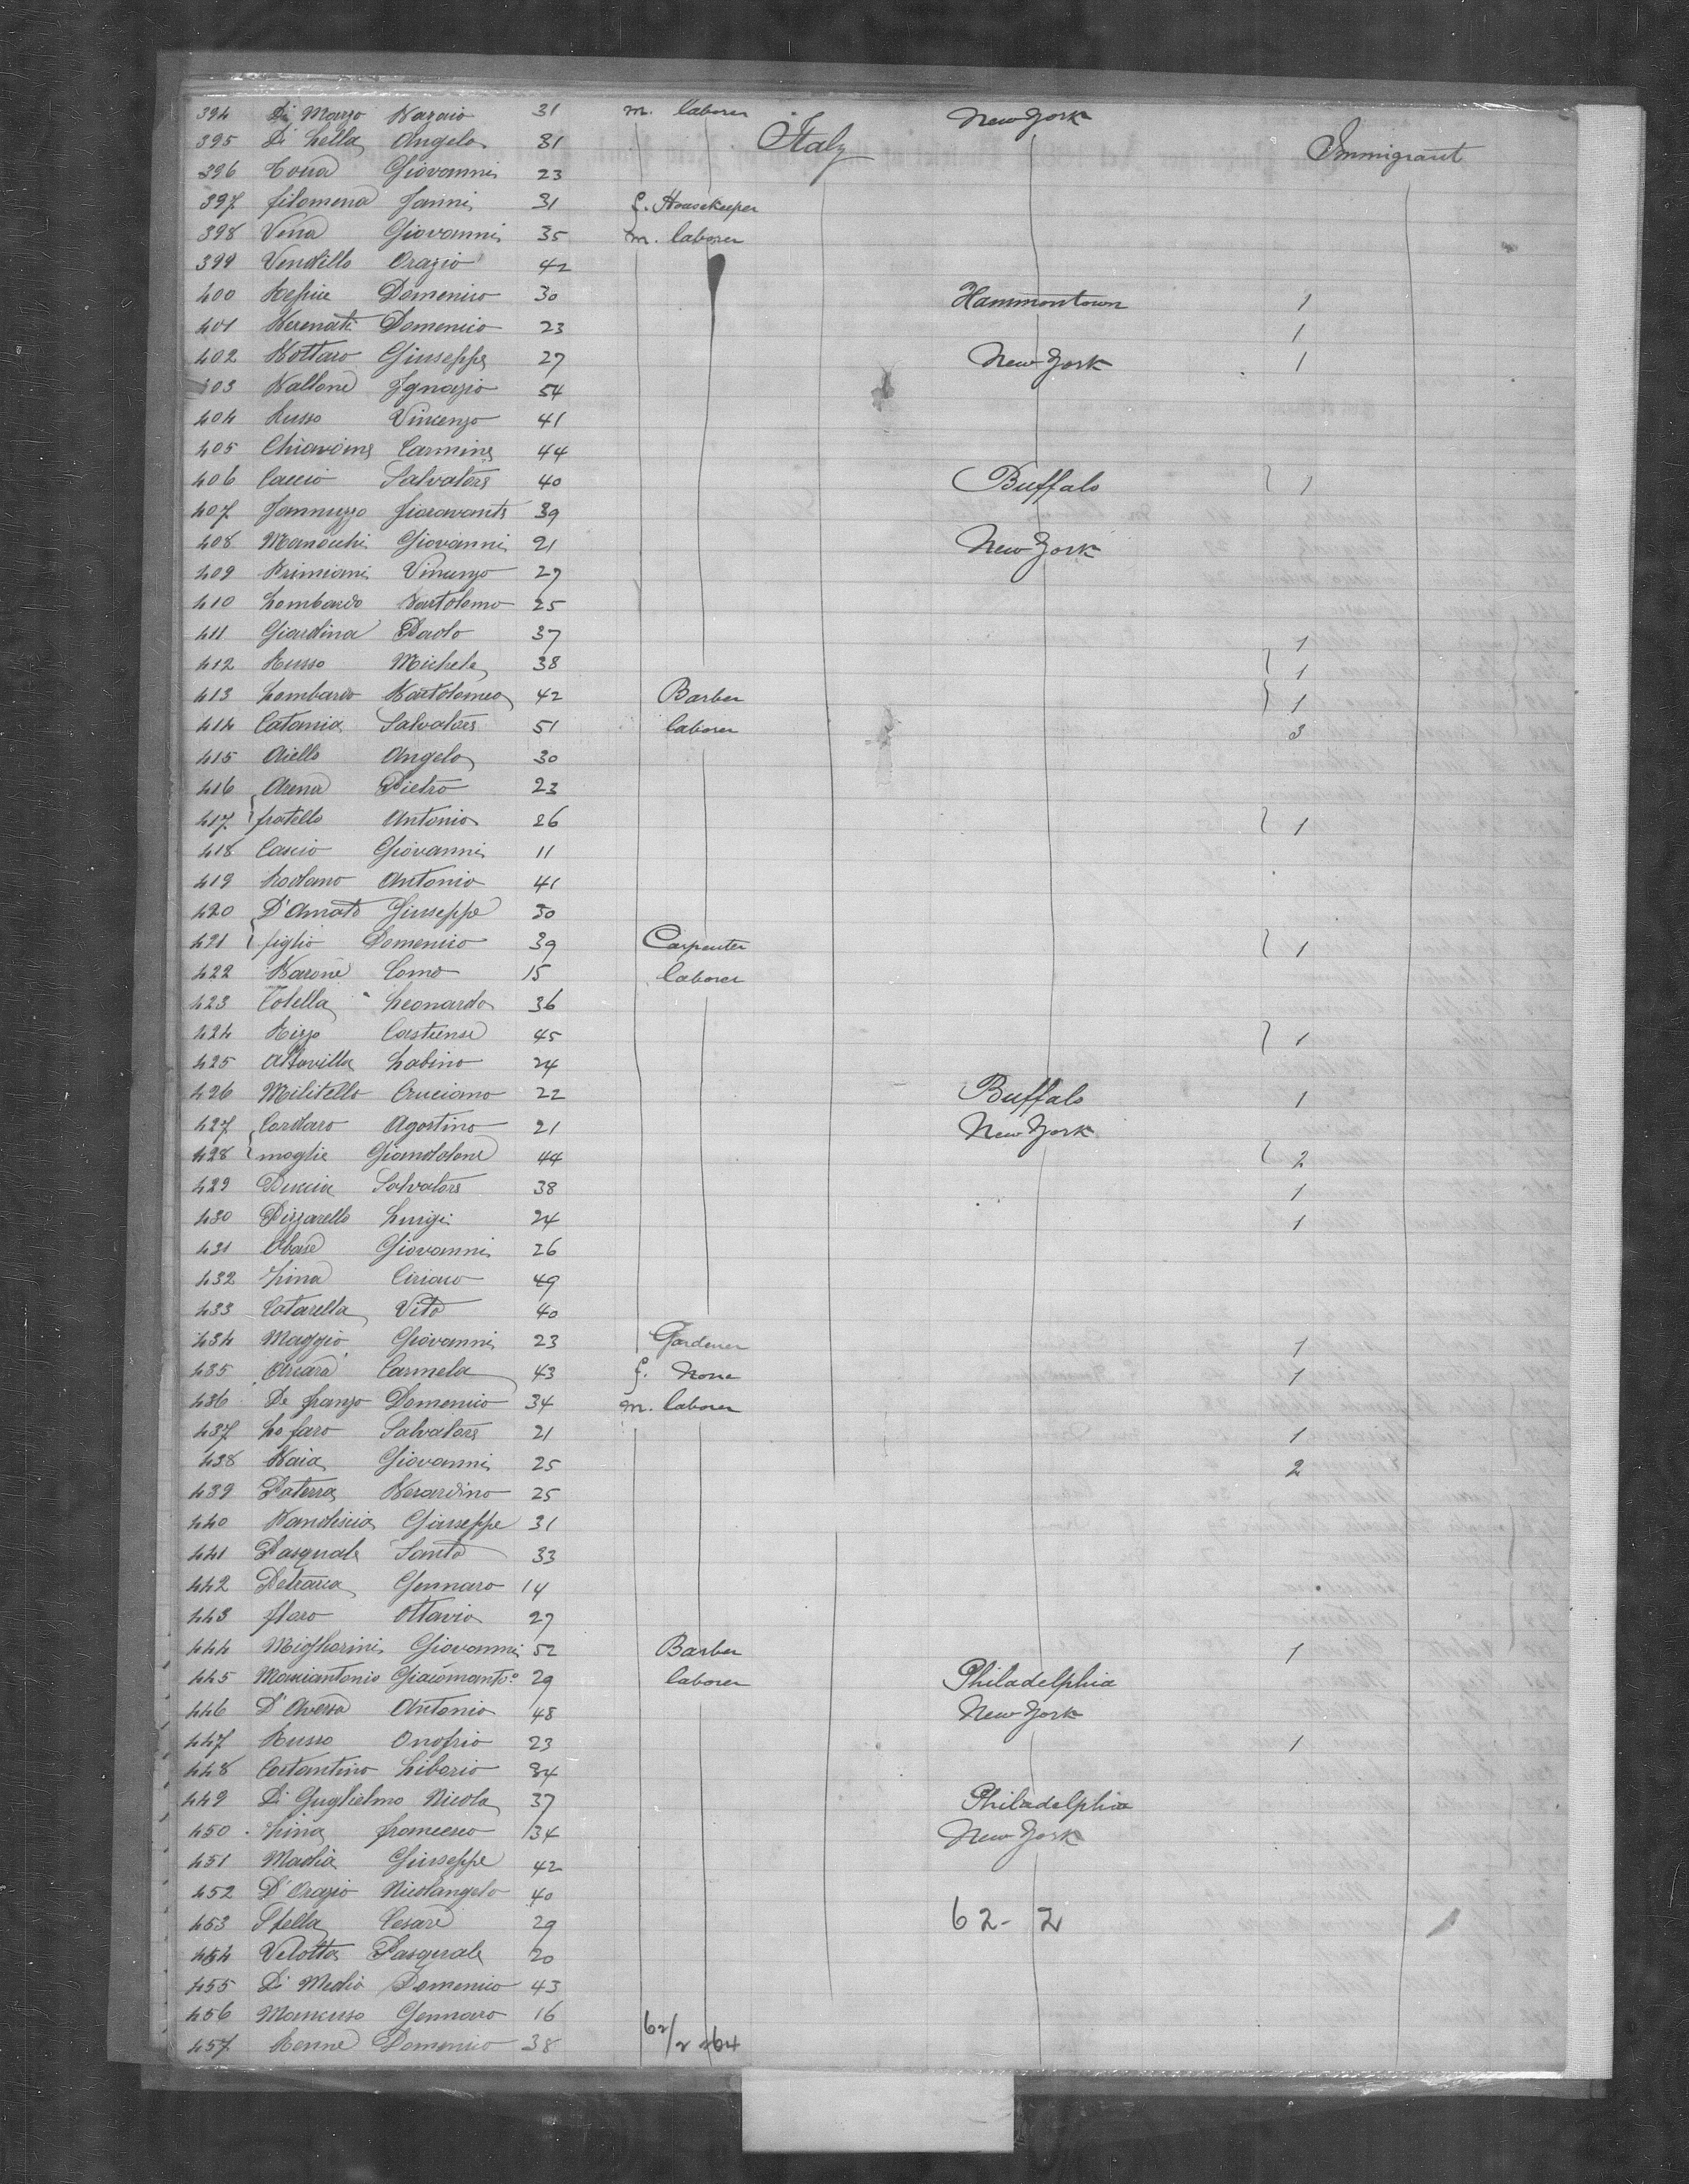 394 Di Marzo Nazaio 31 m. laborer New York
395 Di Lella Angelo 31 Italy Immigrant
396 Giovanni 23
397 filomena Janni 31 f. Housekeeper
398 Vena Giovanni 35 m. laborer
399 Vendillo Orazio 42
400 Domenico 30 Hammontown 1
401 Domenico 23 1
402 Nottaro Giuseppe 27 New York 1
403 Ignazio 54
404 Russo Vincenzo 41
405 Carmine 44
406 Salvatore 40 Buffalo 1
407 Jannuzzo fioravante 39
408 Manocchi Giovanni 21 New York
409 Vincenzo 27
410 Lombardo Bartolomo 25
411 Giardina Paolo 37 1
412 Russo Michele 38 1
413 Lombardo Bartolomeo 42 Barber 1
414 Catania Salvatore 51 laborer 3
415 Aiello Angelo 30
416 Arena Pietro 23
417 fratello Antonio 26 1
418 Cascio Giovanni 11
419 Rodano Antonio 41
420 D'Amato Giuseppe 30
421 figlio Domenico 39 Carpenter 1
422 Barone Como 15 laborer
423 Totella Leonardo 36
424 Rizzo 45 1
425 Altavilla Sabino 24
426 Militello Cruciano 22 Buffalo 1
427 Cardaro Agostino 21 New York
428 moglie 44 2
429 Salvatore 38 1
430 Pizzarello Luigi 24 1
431 Giovanni 26
432 Ciriaco 49
433 Catarella Vito 40
434 Maggio Giovanni 23 Gardener 1
435 Carmela 43 f. None 1
436 De franzo Domenico 34 m. laborer
437 Lo faro Salvatore 21 1
438 Naia Giovanni 25 2
439 Paterra 25
440 Giuseppe 31
441 Pasquale Santo 33
442 Petraia Gennaro 14
443 floro Ottavio 27
444 Giovanni 52 Barber 1
445 Marciantonio Giacomanto. 29 laborer Philadelphia
446 D'Aversa Antonio 48 New York
447 Russo Onofrio 23 1
448 Costantino Liborio 34
449 Di Guglielmo Nicola 37 Philadelphia
450 francesco 34 New York
451 Madia Giuseppe 42
452 D'Orazio Nicolangelo 40
453 Stella Cesare 29 62- 2
454 Velotta Pasquale 20
455 Di Medio Domenico 43
456 Mancuso Gennaro 16
457 Renne Domenico 38 62/2 64